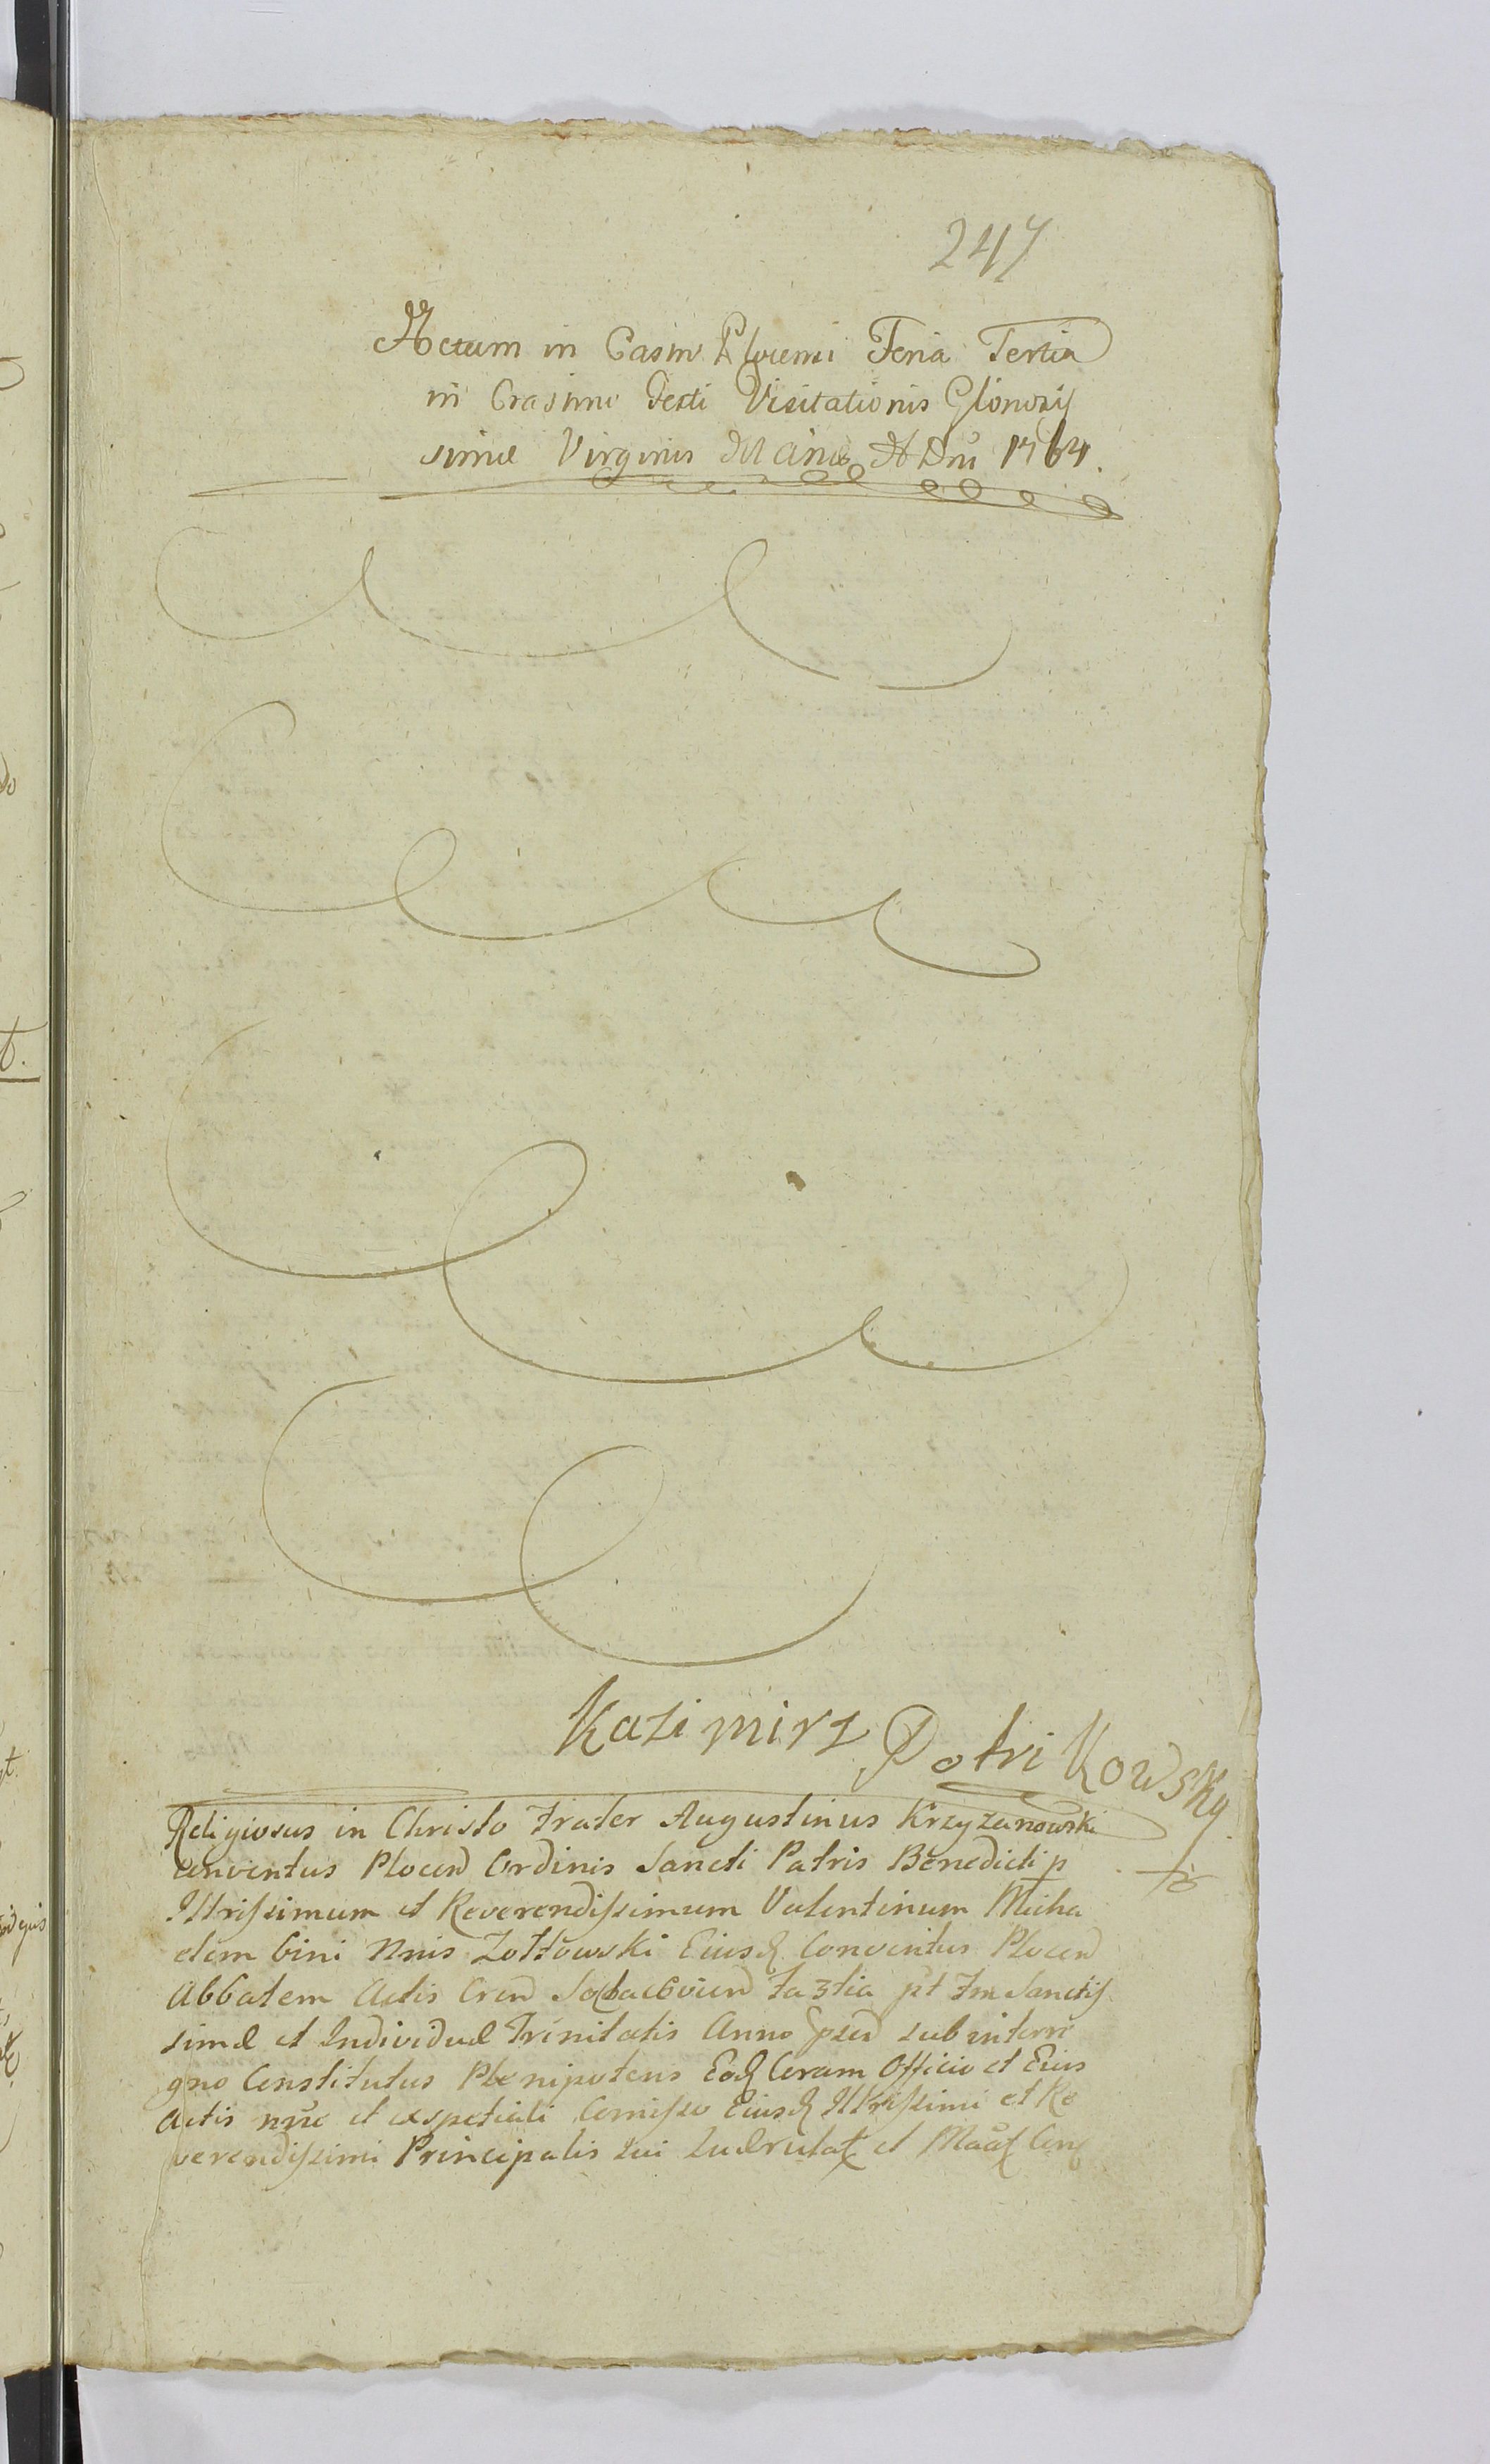 247
Actum in Castro Plocensi Feria Tertia
in Crastino Festi Visitationis Gloriosis
simæ Virginis Mariæ A Dni 1764.
Kazimirz Potrikowsky
Religiosus in Christo Frater Augustinus Krzyzanowski
Conventus Plocen Ordinis Sancti Patris Benedicti p
Illrissimum et Reverendissimum Valentinum Micha
elem bini Nnis Zołtowski Eiusd Conventus Plocen
Abbatem Actis Cren Sochacovien Fa 3tia pt Fm Sanctis
simæ et Individuæ Trinitatis Anno psen sub interre
gno Constitutus Plenipotens Eod Coram Officio et Eius
Actis nunc et ex speciali Comisso Eiusd Illrissimi et Re
verendissimi Principalis sui et Con